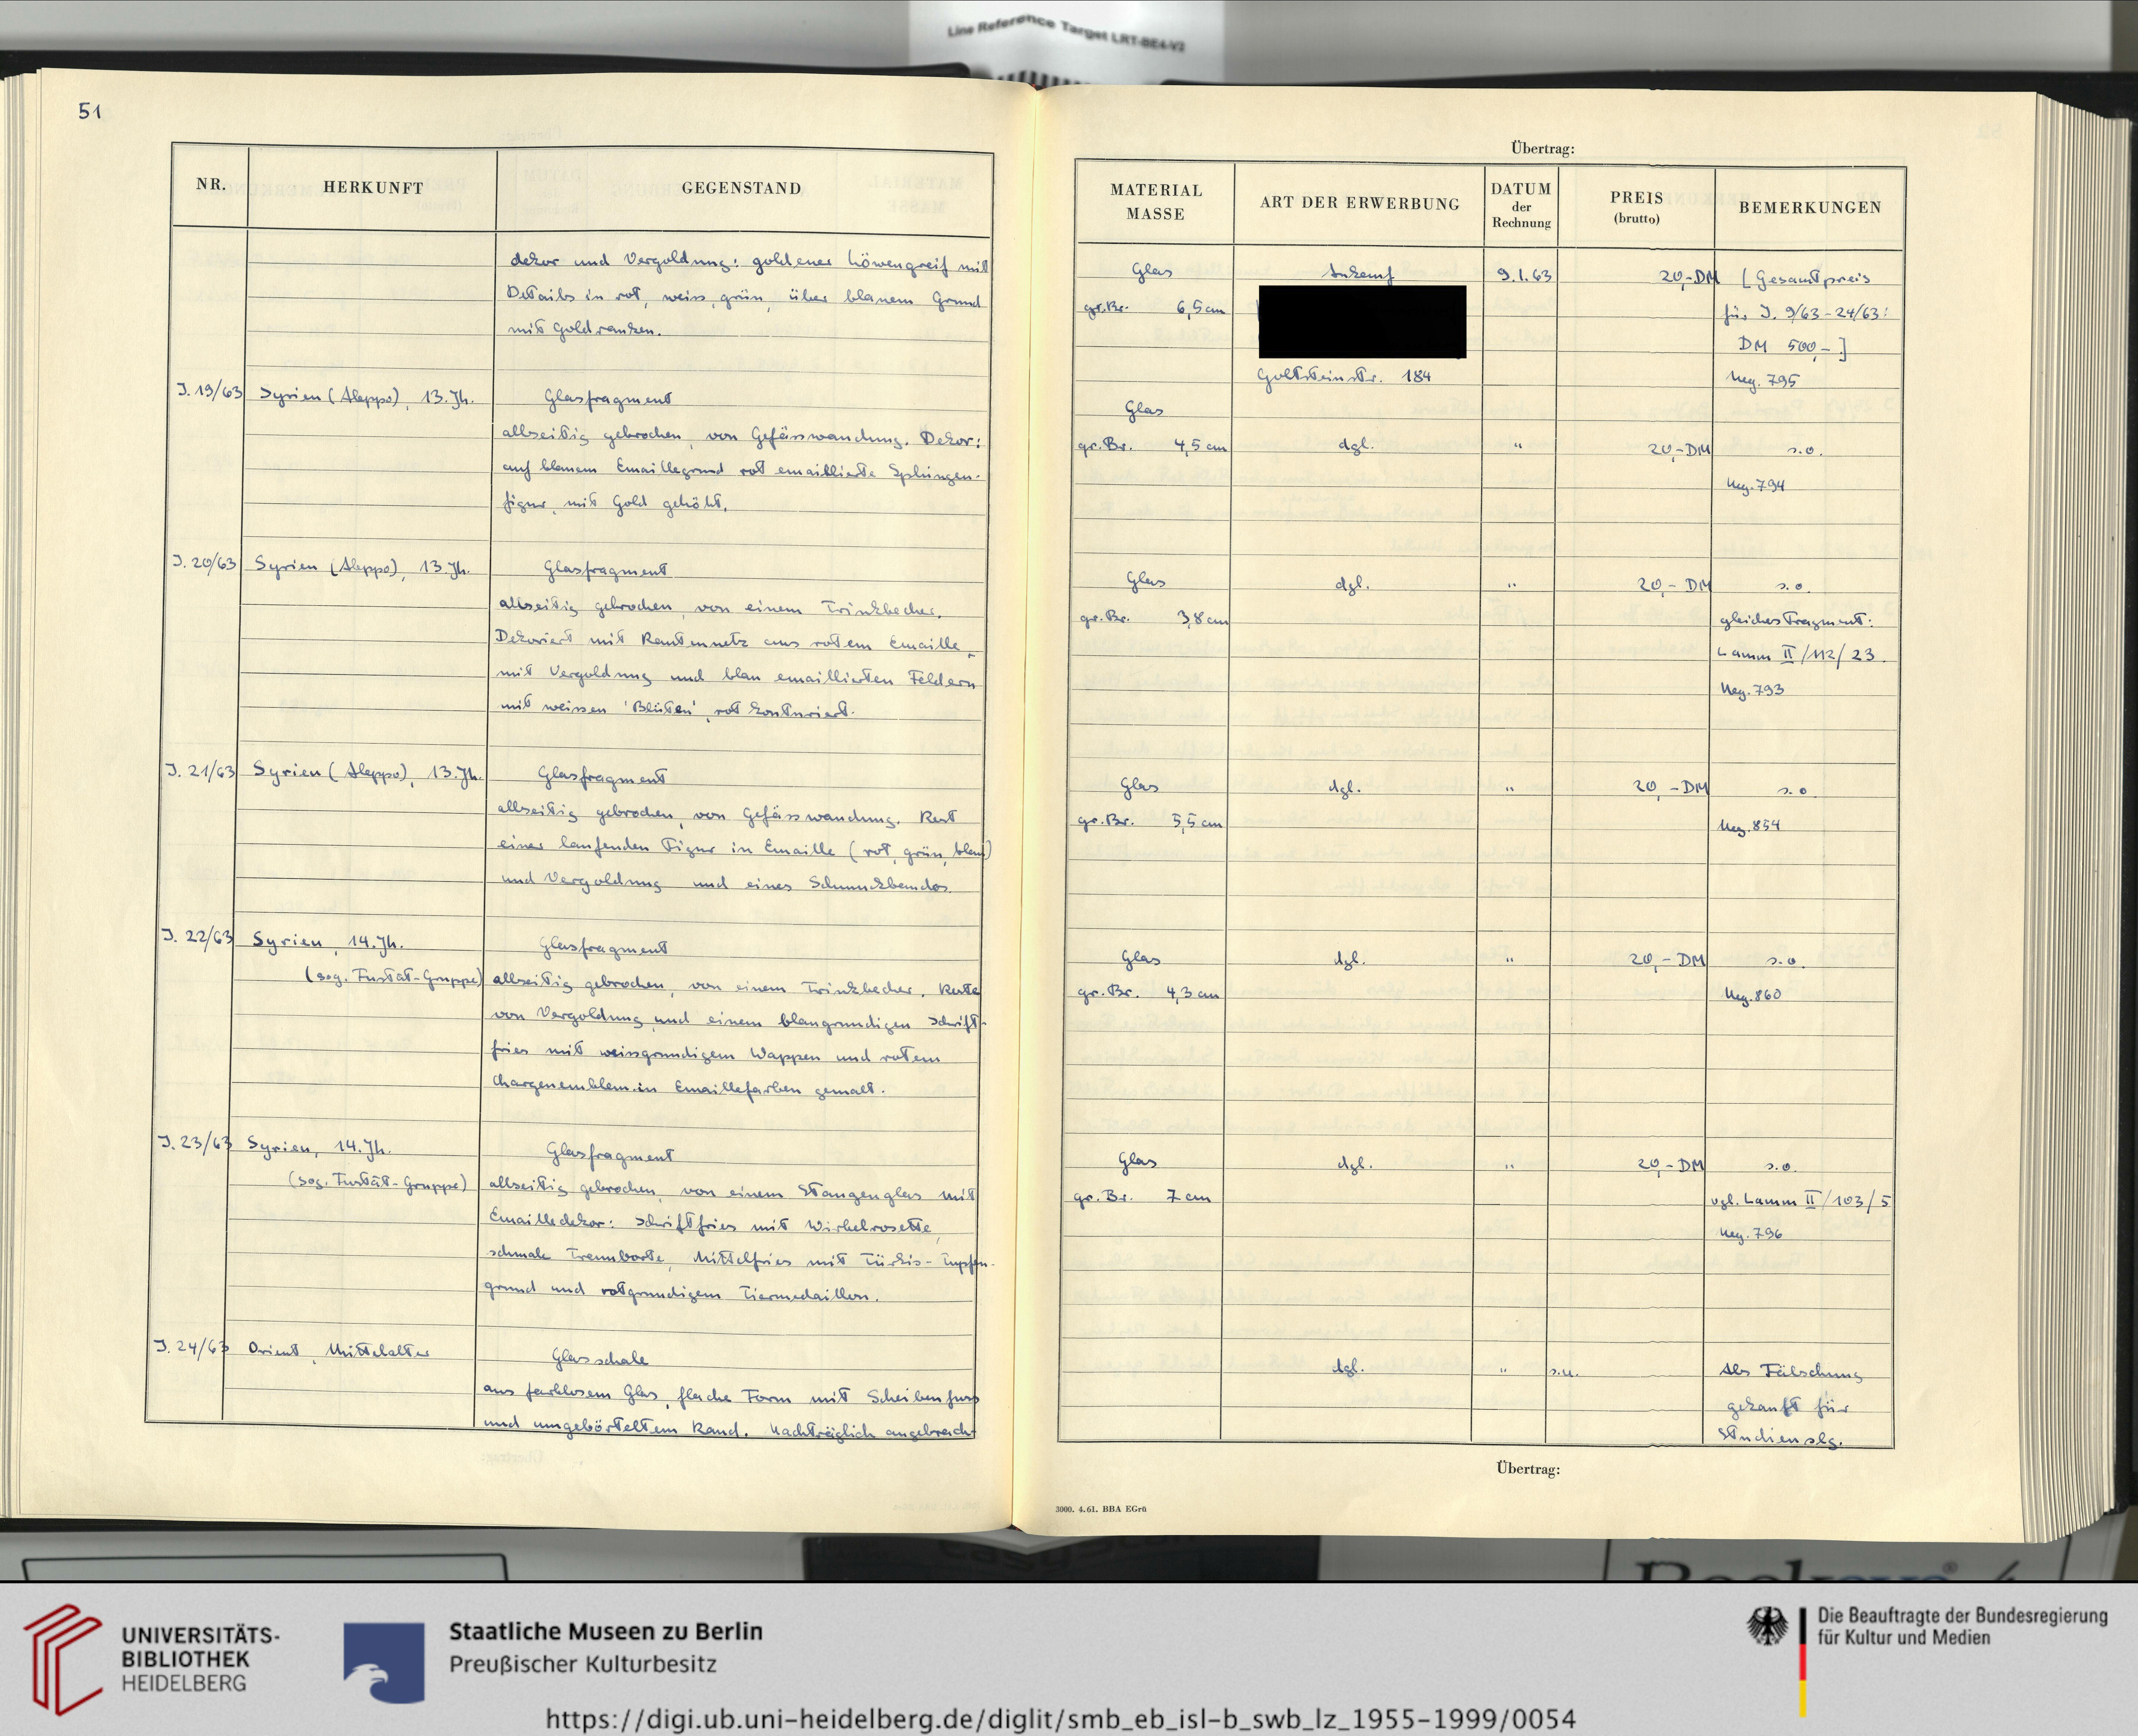 Line Reference Target LRT-BE4-V2
51
NR. HERKUNFT GEGENSTAND
dekor und Vergoldung: goldener Löwengreif mit
Details in rot, weiss, grün, über blauem Grund
mit Goldranken.
J. 19/63 Syrien (Aleppo), 13. Jh. Glasfragment
allseitig gebrochen, von Gefässwandung. Dekor:
auf blauem Emaillegrund rot emaillierte Sphingen-
figur, mit Gold gehöht.
J. 20/63 Syrien (Aleppo), 13. Jh. Glasfragment
allseitig gebrochen, von einem Trinkbecher.
Dekoriert mit Rautennetz aus rotem Emaille,
mit Vergoldung und blau emaillierten Feldern
mit weissen 'Blüten', rot konturiert.
J. 21/63 Syrien (Aleppo), 13. Jh. Glasfragment
allseitig gebrochen, von Gefässwandung. Rest
einer laufenden Figur in Emaille (rot, grün, blau)
und Vergoldung und eines Schmuckbandes.
J. 22/63 Syrien, 14. Jh. Glasfragment
(sog. Fustat-Gruppe) allseitig gebrochen, von einem Trinkbecher. Reste
von Vergoldung und einem blaugrundigen Schrift-
fries mit weissgrundigem Wappen und rotem
Chargenemblem in Emaillefarben gemalt.
J. 23/63 Syrien, 14. Jh. Glasfragment
(sog. Fustāt-Gruppe) allseitig gebrochen, von einem Stangenglas mit
Emailledekor: Schriftfries mit Wirbelrosette,
schmale Trennborte, Mittelfries mit Türkis-Tupfen-
grund und rotgrundigem Tiermedaillon.
J. 24/63 Orient, Mittelalter Glasschale
aus farblosem Glas, flache Form mit Scheibenfuss
und umgebörteltem Rand. Nachträglich angebracht
Übertrag:
MATERIAL MASSE ART DER ERWERBUNG DATUM der Rechnung PREIS (brutto) BEMERKUNGEN
Glas Ankauf 9.1.63 20,-DM [Gesamtpreis
gr.Br. 6,5 cm für J. 9/63-24/63:
DM 500,-]
Goltsteinstr. 184 Neg. 795
Glas
gr.Br. 4,5 cm dgl. " 20,-DM s.o.
Neg. 794
Glas dgl. " 20,- DM s.o.
gr.Br. 3,8 cm gleiches Fragment:
Lamm II/112/23.
Neg. 793
Glas dgl. " 20,-DM s.o.
gr.Br. 5,5 cm Neg. 854
Glas dgl. " 20,- DM s.o.
gr.Br. 4,3 cm Neg. 860
Glas dgl. " 20,-DM s.o.
gr.Br. 7 cm vgl. Lamm II/103/5
Neg. 796
dgl. " s.u. Als Fälschung
gekauft für
Studienslg.
Übertrag:
3000. 4.61. BBA EGrü
UNIVERSITÄTS-
BIBLIOTHEK
HEIDELBERG
Staatliche Museen zu Berlin
Preußischer Kulturbesitz
Die Beauftragte der Bundesregierung
für Kultur und Medien
https://digi.ub.uni-heidelberg.de/diglit/smb_eb_isl-b_swb_lz_1955-1999/0054